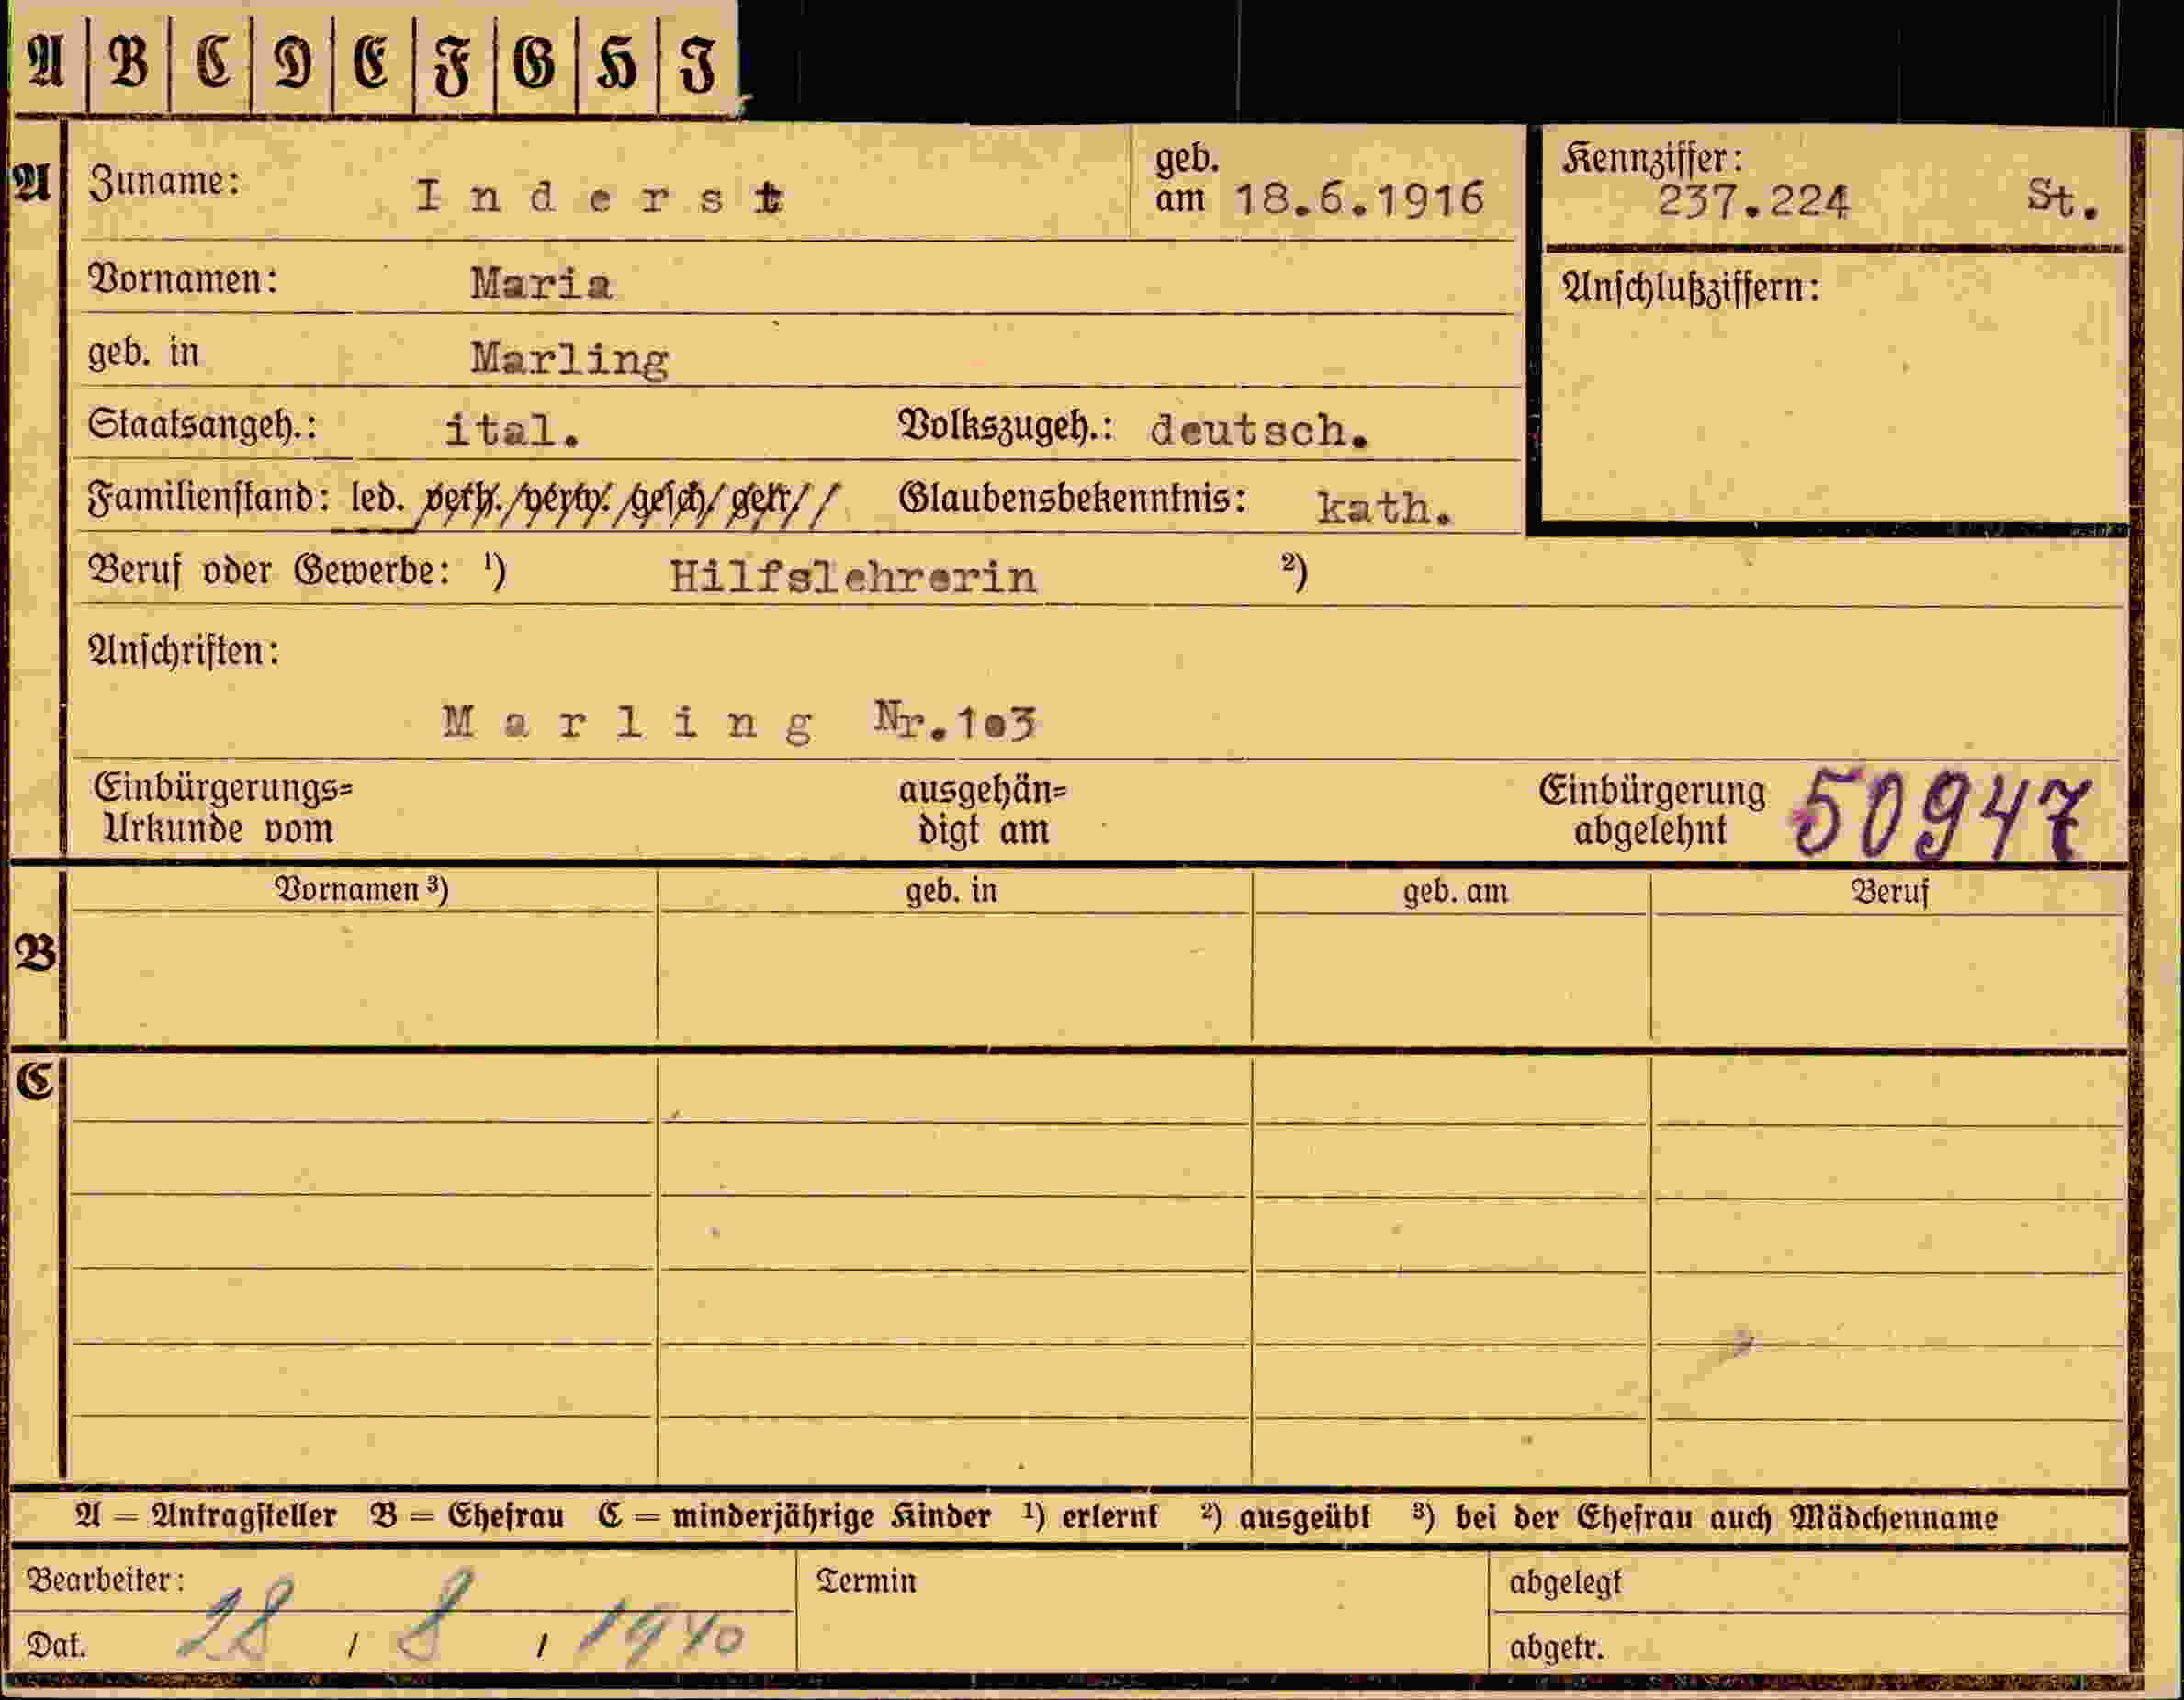 A B C D E F G H I
A Zuname: Inderst geb. am 18.6.1916 Kennziffer: 237.224 St.
Vornamen: Maria Anschlußziffern:
geb. in Marling
Staatsangeh.: ital. Volkszugeh.: deutsch.
Familienstand: led. verh. verw. gesch. getr. Glaubensbekenntnis: kath.
Beruf oder Gewerbe: ¹) Hilfslehrerin ²)
Anschriften:
Marling Nr.103
Einbürgerungs= ausgehän= Einbürgerung 50947
Urkunde vom digt am abgelehnt
Vornamen ³) geb. in geb. am Beruf
B
C
A = Antragsteller B = Ehefrau C = minderjährige Kinder ¹) erlernt ²) ausgeübt ³) bei der Ehefrau auch Mädchenname
Bearbeiter: Termin abgelegt
Dat. 28 / 8 / 1940 abgetr.